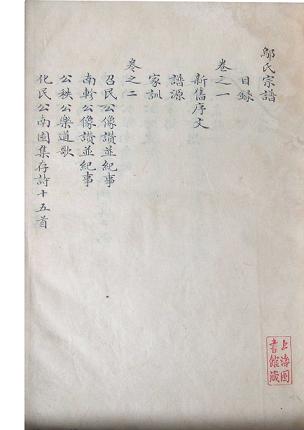 鄔氏宗譜
目錄
卷之一
新舊序文
譜源
家訓
卷之二
召民公像讚並紀事
南軫公像讚並紀事
公秩公樂道歌
化民公南園集存詩十五首
上海圖
書館藏